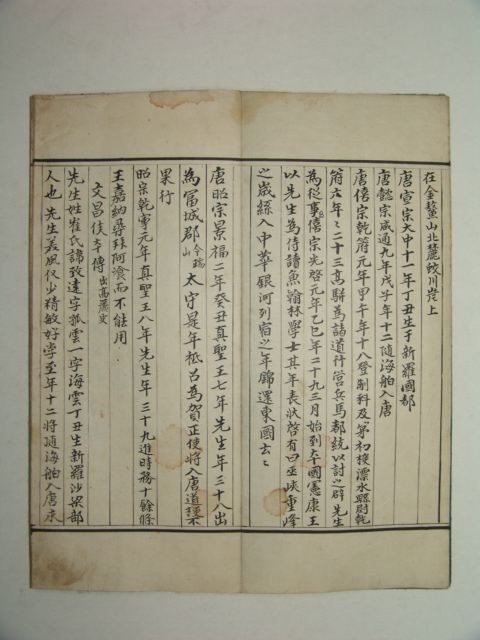 在金鰲山北麓蛟川岸上
唐宣宗大中十一年丁丑生于新羅國都
唐懿宗咸通九年戊子年十二隨海舶入唐
唐僖宗乾符元年甲午年十八登制科及第初授漂水縣尉乾
符六年年二十三高騈為諸道行營兵馬都統以討之辟先生
為從事僖宗光啓元年乙巳年二十九三月始到本國憲康王
以先生為侍讀魚翰林學士其年表狀啓有曰巫峽重峰
之歲絲入中華銀河列宿之年錦還東國云云
唐昭宗景福二年癸丑真聖王七年先生年三十八出
為富城郡今瑞山太守是年柢召為賀正使將入唐道梗不
果行
昭宗乾寧元年真聖王八年先生年三十九進時務十餘條
王嘉納尋拜阿飡而不能用
文昌侯本傳出高麗史
先生姓崔氏諱致遠字孤雲一字海雲丁丑生新羅沙梁部
人也先生美風仪少精敏好學至年十二將隨海舶入唐求